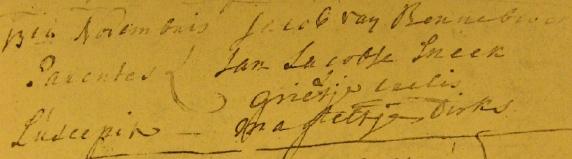 13tia Novembris Jacob van Bennebroek
Parentes { Jan Jacobse Sneek
Grietje Cnelis
Suscepit - Ma Neeltje Dirks